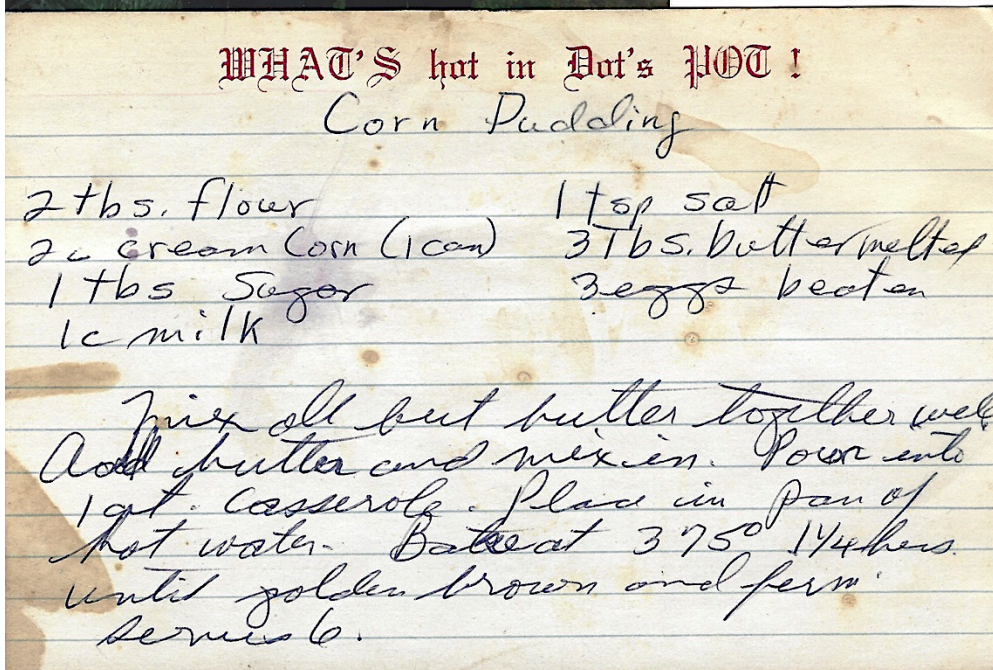 WHAT'S hot in Dot's POT !
Corn Pudding
2 tbs. flour
1 tsp salt
2c cream Corn (1 can)
3 Tbs. butter melted
1 tbs Sugar
3 eggs beaten
1c milk
Mix all but butter together well
Add butter and mix in. Pour into
1 qt. casserole. Place in pan of
hot water. Bake at 375° 1 1/4 hrs.
until golden brown and firm.
serves 6.